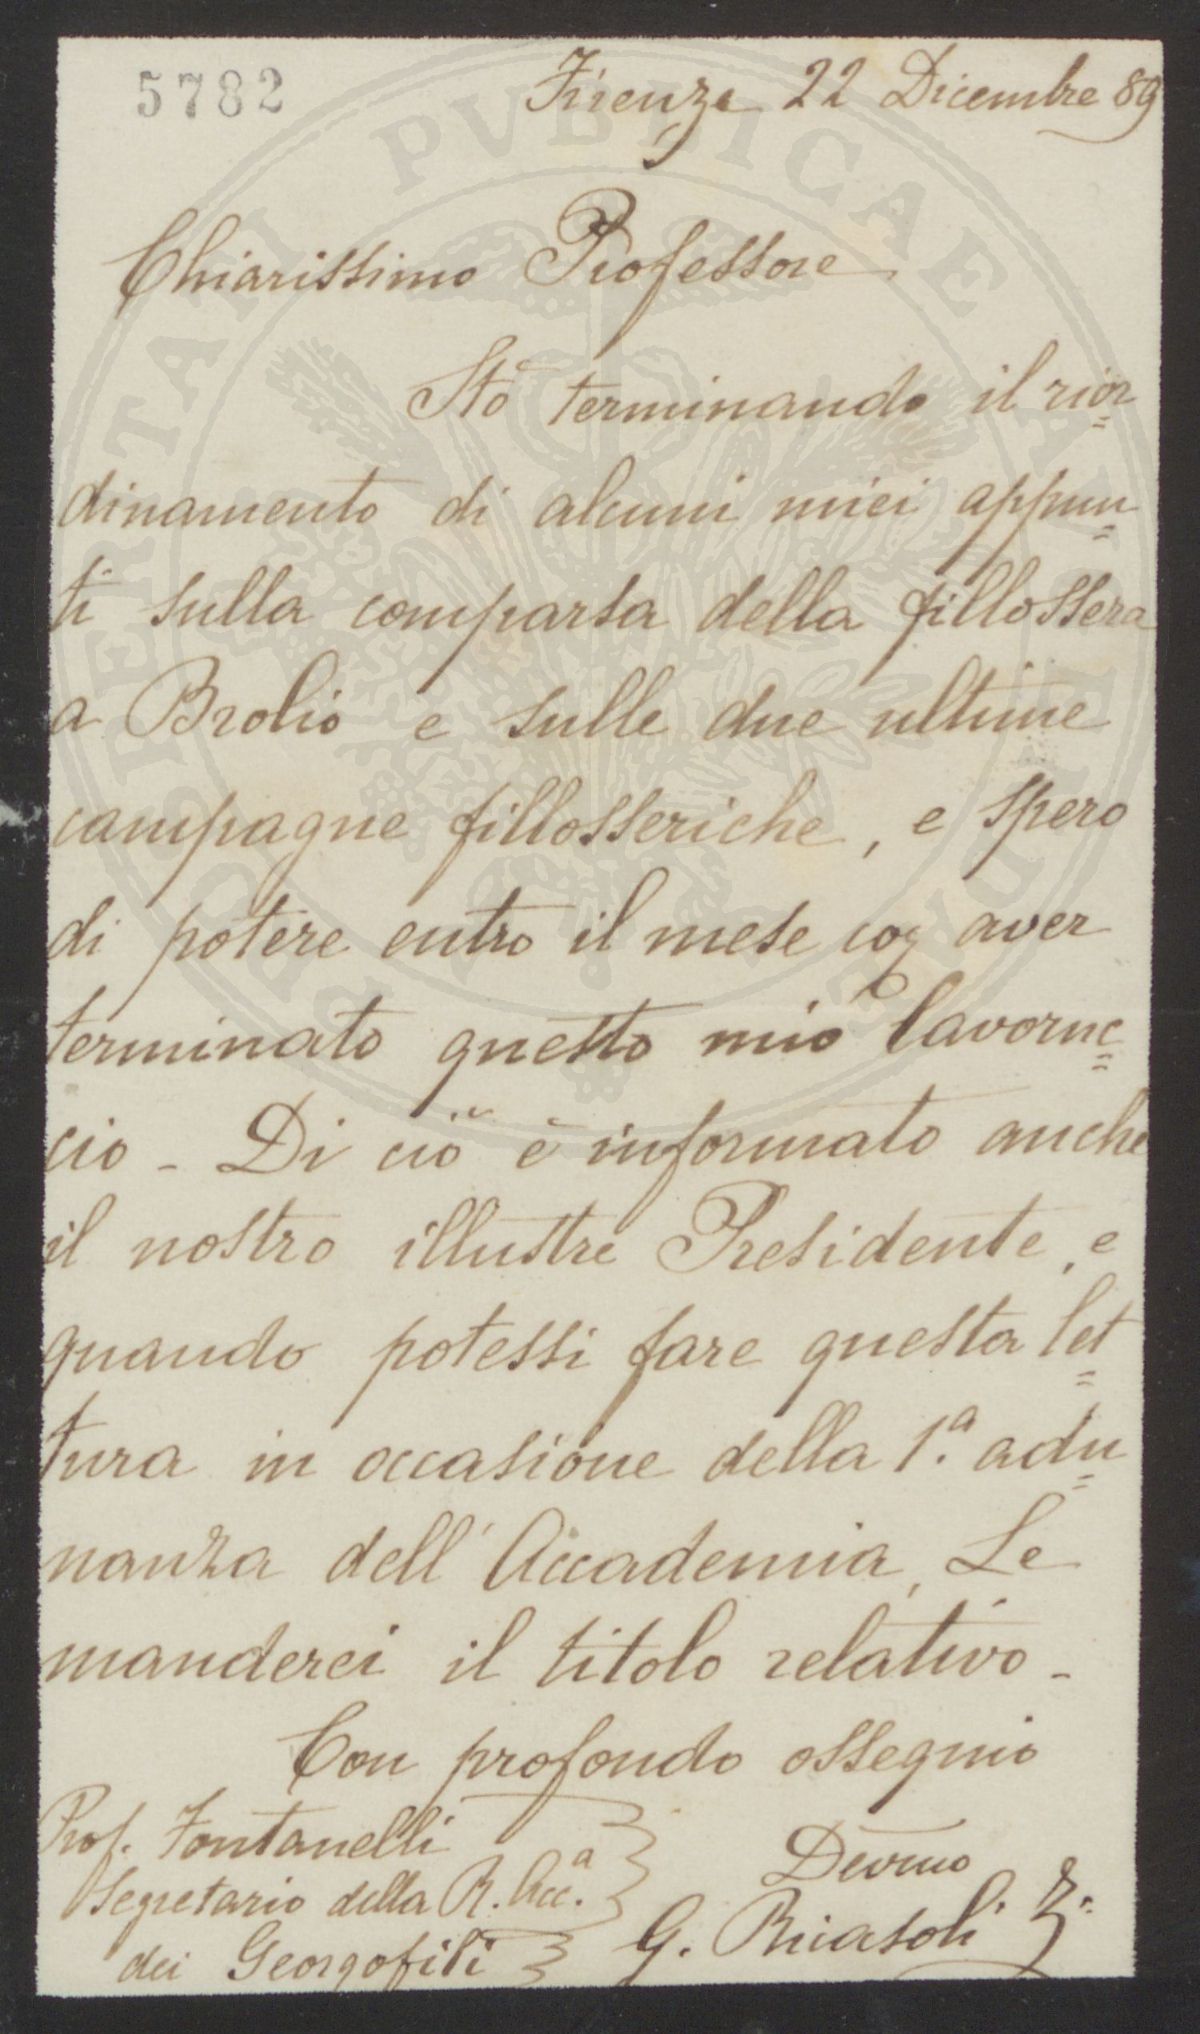 5782
Firenze 22 Dicembre 89
Chiarissimo Professore
Stò terminando il rior=
dinamento di alcuni miei appun=
ti sulla comparsa della fillossera
a Brolio e sulle due ultime
campagne fillosseriche, e spero
di potere entro il mese cor aver
terminato questo mio lavoruc=
cio - Di ciò è informato anche
il nostro illustre Presidente, e
quando potessi fare questa let=
tura in occasione della 1.a adu=
nanza dell'Accademia, Le
manderei il titolo relativo -
Con profondo ossequio
Prof. Fontanelli
Segretario della R. Acc.a
dei Georgofili
Devmo
G. Ricasoli